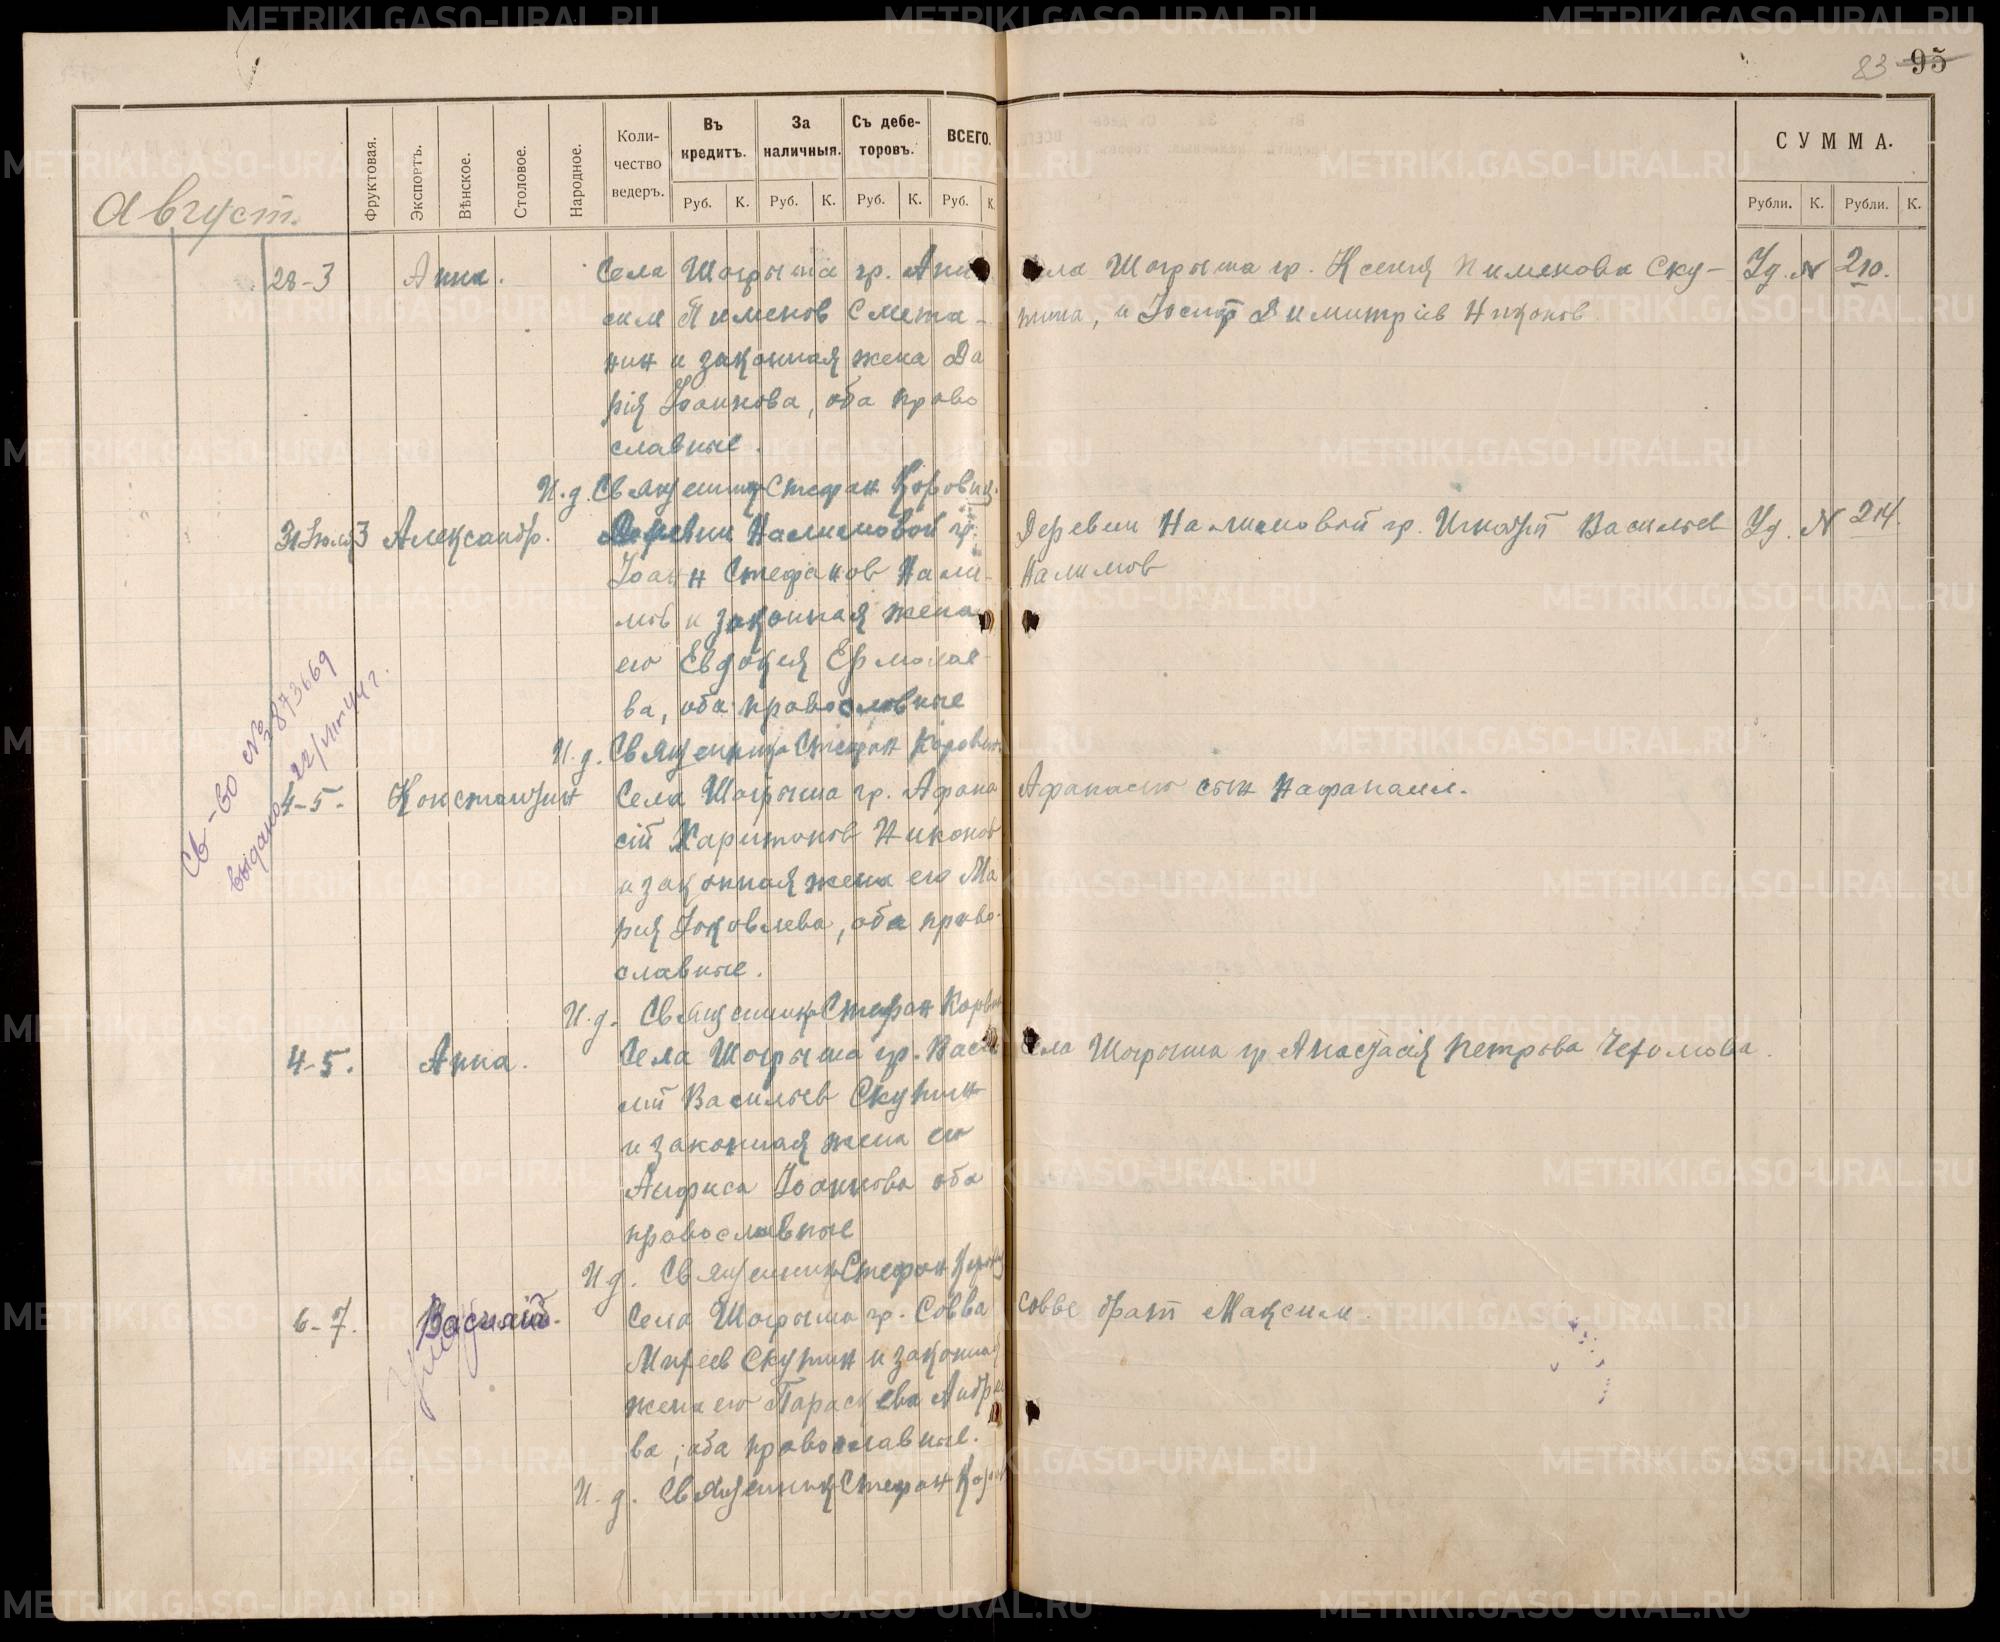 83 95
Август.
Фруктовая.
Экспортъ.
Вѣнское.
Столовое.
Народное.
Количество ведеръ.
Въ кредитъ.
За наличныя.
Съ дебеторовъ.
ВСЕГО.
Руб. К. Руб. К. Руб. К. Руб. К.
СУММА.
Рубли. К. Рубли. К.
28-3 Анна. Села Шогрыша гр. Ани
сим Пименов Смета-
нин и законная жена Да
рія Іоаннова, оба право
славные.
И.д. Священник Стефан Коровин.
Села Шогрыша гр. Ксенія Пименова Ску-
пина, и Іосиф Димитріев Никонов
Уд. № 210.
31 Іюля 3 Александр. Деревни Налимовой гр.
Іоанн Стефанов Нали-
мов и законная жена
его Евдокия Ермолае-
ва, оба православные
И.д. Священник Стефан Коровин
Деревни Налимовой гр. Игнатій Васильев
Налимов
Уд. № 214.
Св-во № 2873669
выдано 22/
4-5. Константин Села Шогрыша гр. Афана
сій Харитонов Никонов
и законная жена его Ма
рия Іаковлева, оба право-
славные.
И.д. Священник Стефан Коровин
Афанасию сын Нафанаил.
4-5. Анна. Села Шогрыша гр. Васи
лій Васильев Скупин
и законная жена его
Анфиса Іоаннова оба
православные
И д. Священник Стефан
Села Шогрыша гр Анастасія Петрова Чехомова.
6-7. Села Шогрыша гр. Савва
Михеев Скупин и законная
жена его Параскева Андрее
ва, оба православные.
И.д. Священник Стефан Коров
Савве брат Максим.
METRIKI.GASO-URAL.RU